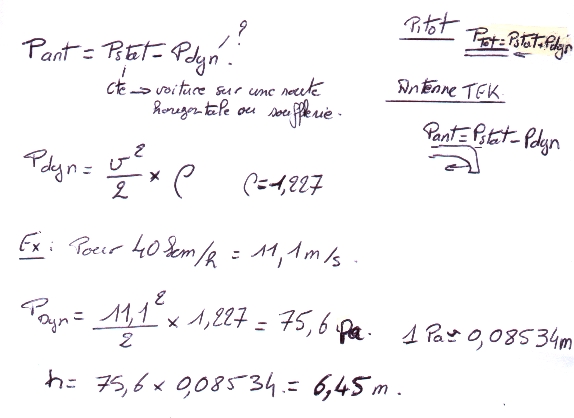 Pant = Pstat - Pdyn ?
Cte → voiture sur une route
horizontale ou soufflerie.
Pitot
Ptot = Pstat + Pdyn
Antenne TEK
Pant = Pstat - Pdyn
Pdyn = v²/2 × ρ ρ = 1,227
Ex : Pour 40 km/h = 11,1 m/s.
PDyn = 11,1²/2 × 1,227 = 75,6 Pa. 1 Pa = 0,08534 m
h = 75,6 × 0,08534 = 6,45 m.